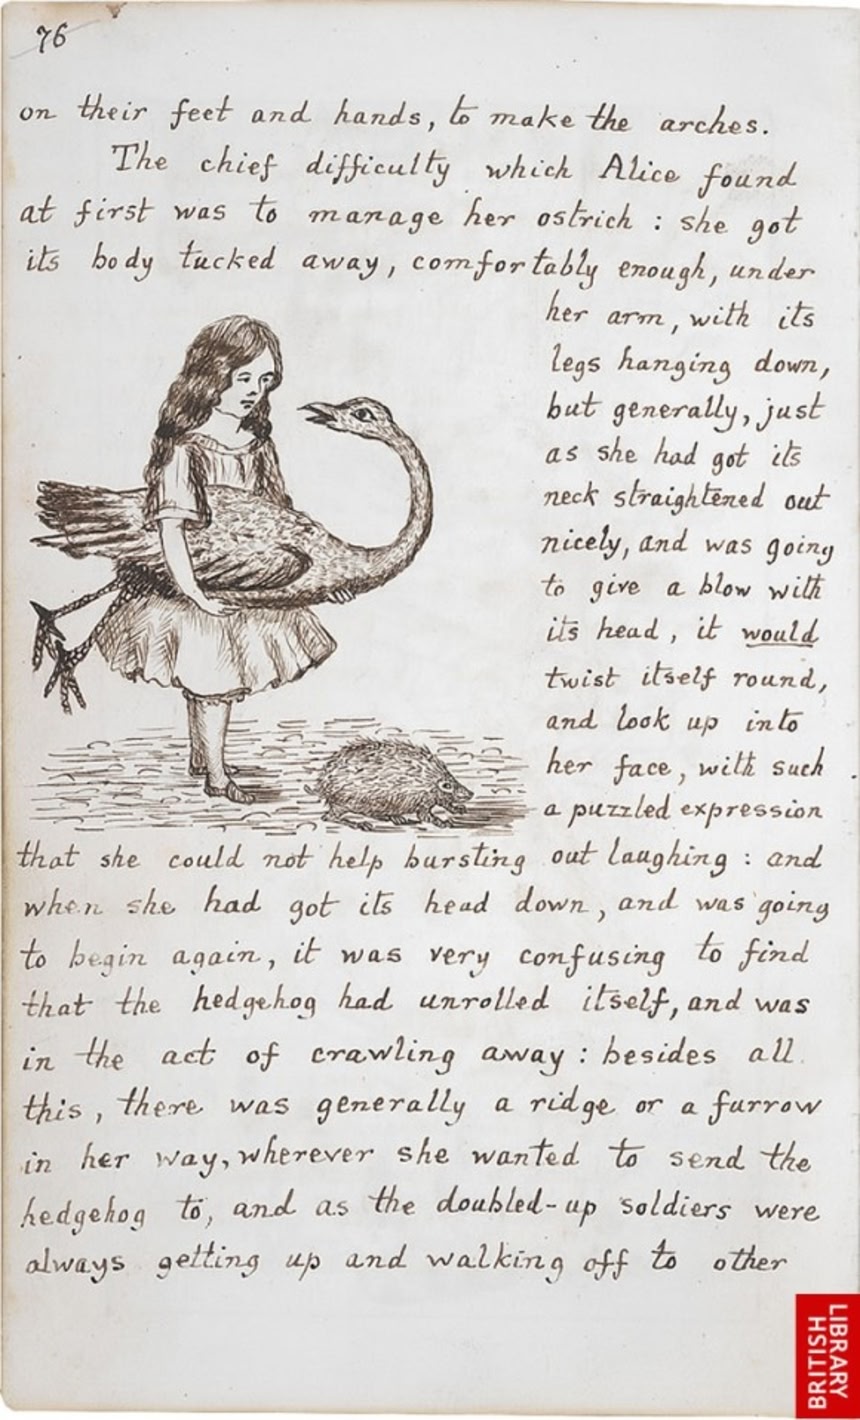 76
on their feet and hands, to make the arches.
The chief difficulty which Alice found
at first was to manage her ostrich : she got
its body tucked away, comfortably enough, under
her arm, with its
legs hanging down,
but generally, just
as she had got its
neck straightened out
nicely, and was going
to give a blow with
its head, it would
twist itself round,
and look up into
her face, with such
a puzzled expression
that she could not help bursting out laughing : and
when she had got its head down, and was going
to begin again, it was very confusing to find
that the hedgehog had unrolled itself, and was
in the act of crawling away : besides all
this, there was generally a ridge or a furrow
in her way, wherever she wanted to send the
hedgehog to, and as the doubled-up soldiers were
always getting up and walking off to other
BRITISH
LIBRARY